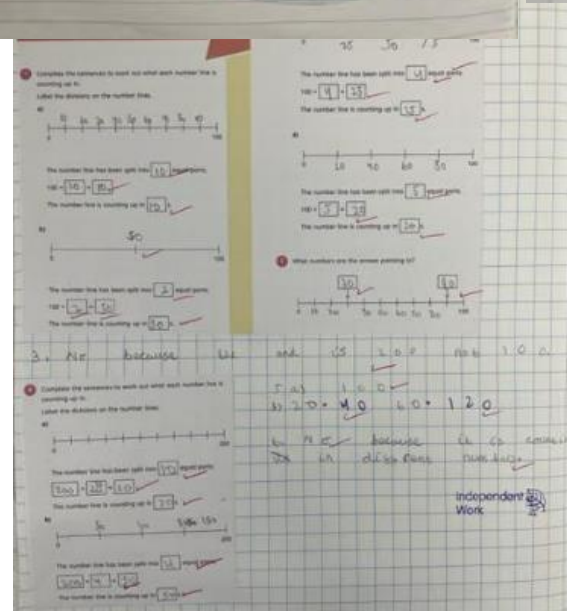 Complete the sentences to work out what each number line is
counting up in.
Label the divisions on the number lines.
a)
0 100
The number line has been split into 10 equal parts.
100 ÷ 10 = 10
The number line is counting up in 10 s.
b)
50
0 100
The number line has been split into 2 equal parts.
100 ÷ 2 = 50
The number line is counting up in 50 s.
25 50 75 100
The number line has been split into 4 equal parts.
100 ÷ 4 = 25
The number line is counting up in s.
0 100
The number line has been split into 5 equal parts.
100 ÷ 5 = 20
The number line is counting up in 20 s.
What numbers are the arrows pointing to?
3. No because end is 200 not 100
Complete the sentences to work out what each number line is
counting up in.
Label the divisions on the number lines.
a)
0 200
The number line has been split into 10 equal parts.
200 ÷ 10 = 20
The number line is counting up in 20 s.
b)
0 200
The number line has been split into 4 equal parts.
200 ÷ 4 = 50
The number line is counting up in 50 s.
5. a) 100
b) 20. 40 60. 120
because it is
in numbers
Independent
Work